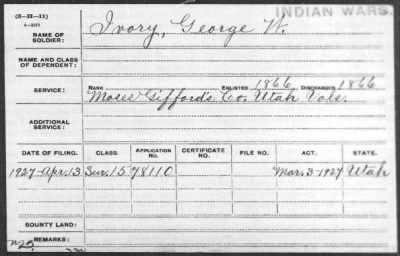 (3-II-11)
6-3253
INDIAN WARS.
NAME OF SOLDIER: Ivory, George W.
NAME AND CLASS OF DEPENDENT:
SERVICE: RANK ENLISTED 1866 DISCHARGED 1866
Moses Gifford's Co. Utah Vols.
ADDITIONAL SERVICE:
DATE OF FILING. CLASS. APPLICATION No. CERTIFICATE No. FILE NO. ACT. STATE.
1927-Apr.13 Sur.15 78110 Mar. 3-1927 Utah
BOUNTY LAND:
REMARKS: